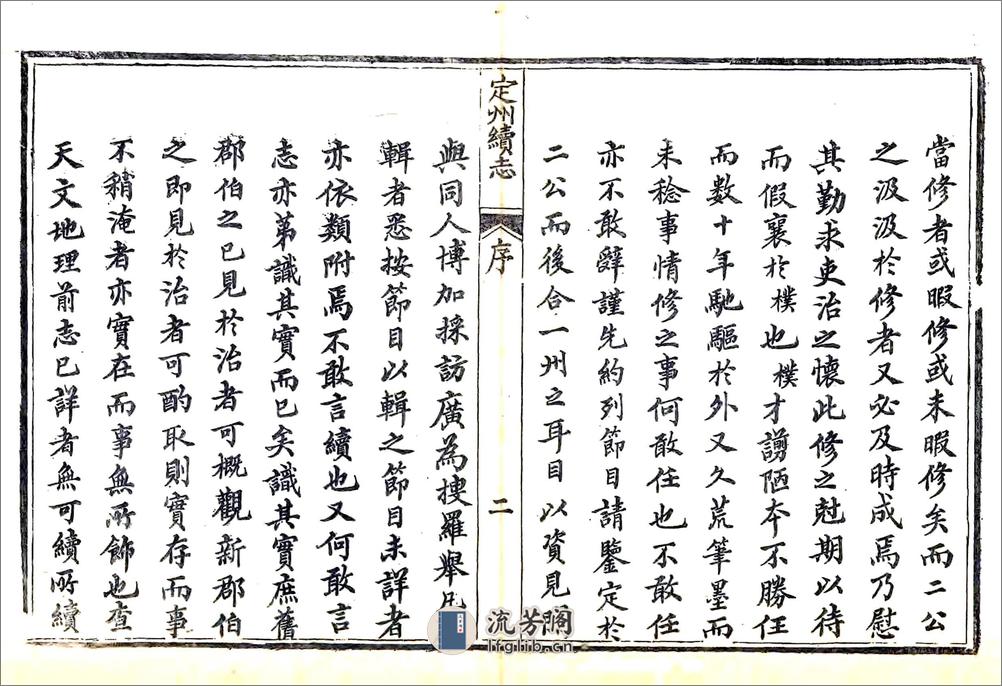 當修者或暇修或未暇修矣而二公
之汲汲於修者又必及時成焉乃慰
其勤求吏治之懷此修之尅期以待
而假襄於樸也樸才謭陋夲不勝任
而数十年馳驅於外又久荒筆墨而
未稔事情修之事何敢任也不敢任
亦不敢辭謹先約列節目請鑒定於
二公而後合一州之耳目以資見
定州續志
序
二
與同人博加採訪廣為捜羅舉凡
輯者悉按節目以輯之節目未詳者
亦依類附焉不敢言續也又何敢言
志亦苐識其實而已矣識其實庶舊
郡伯之已見於治者可概觀新郡伯
之即見於治者可酌取則實存而事
不稍淹者亦實在而事無所飾也查
天文地理前志已詳者無可續所續
流芳閣
lfglib.cn